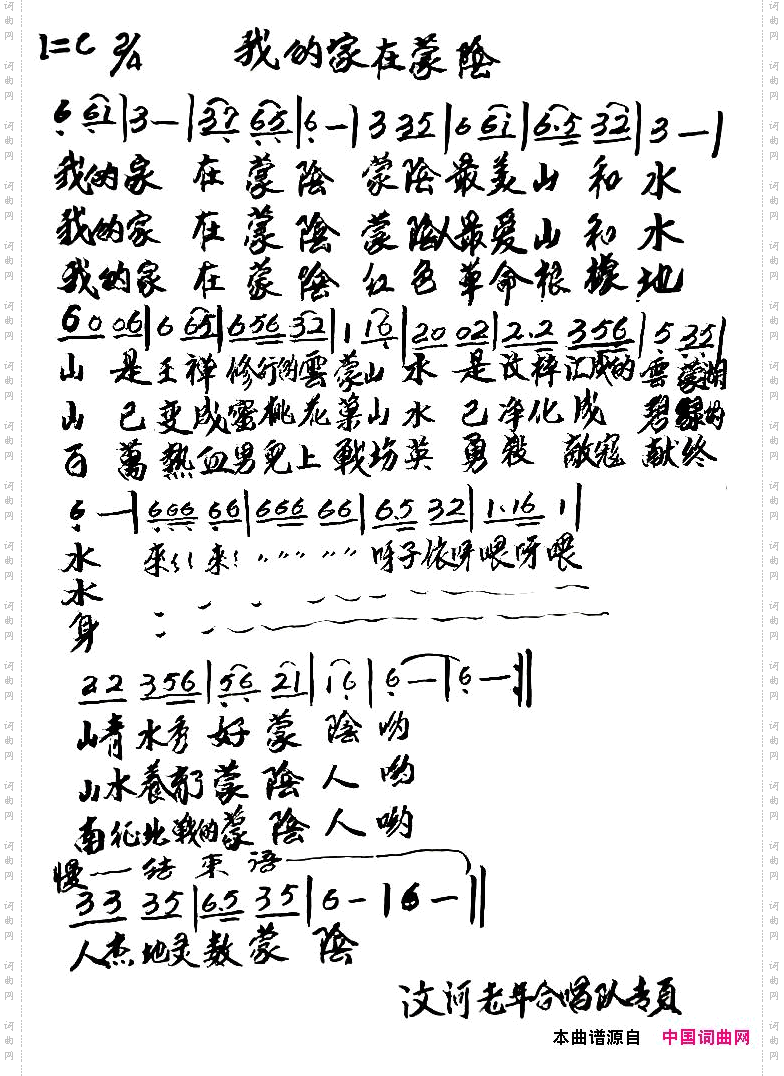 1=C 2/4 我的家在蒙陰
6 61|3—|37 65|6—|3 35|6 61|6.5 32|3—|
我的家 在蒙陰 蒙陰最美山和水
我的家 在蒙陰 蒙陰人最爱山和水
我的家 在蒙陰 红色革命根據地
60 06|6 65|656 32|1 16|20 02|2.2 356|5 35|
山是王禅修行的雲蒙山 水是汶梓汇成的雲蒙湖
山已变成蜜桃花菓山 水已净化成碧緑的
百萬热血男兒上戰场英勇殺敵寇献终
6—|666 66|666 66|6.5 32|1.16 1|
水 来!!来! 〃〃〃 〃〃 呀子依呀喂呀喂
水
身
22 356|56 21|16|6—|6—:||
山青水秀好蒙陰哟
山水養育蒙陰人哟
南征北戰的蒙陰人呦
慢——结束语
33 35|6.5 35|6—|6—||
人杰地灵数蒙陰
汶河老年合唱队专頁
本曲谱源自 中国词曲网
词曲网